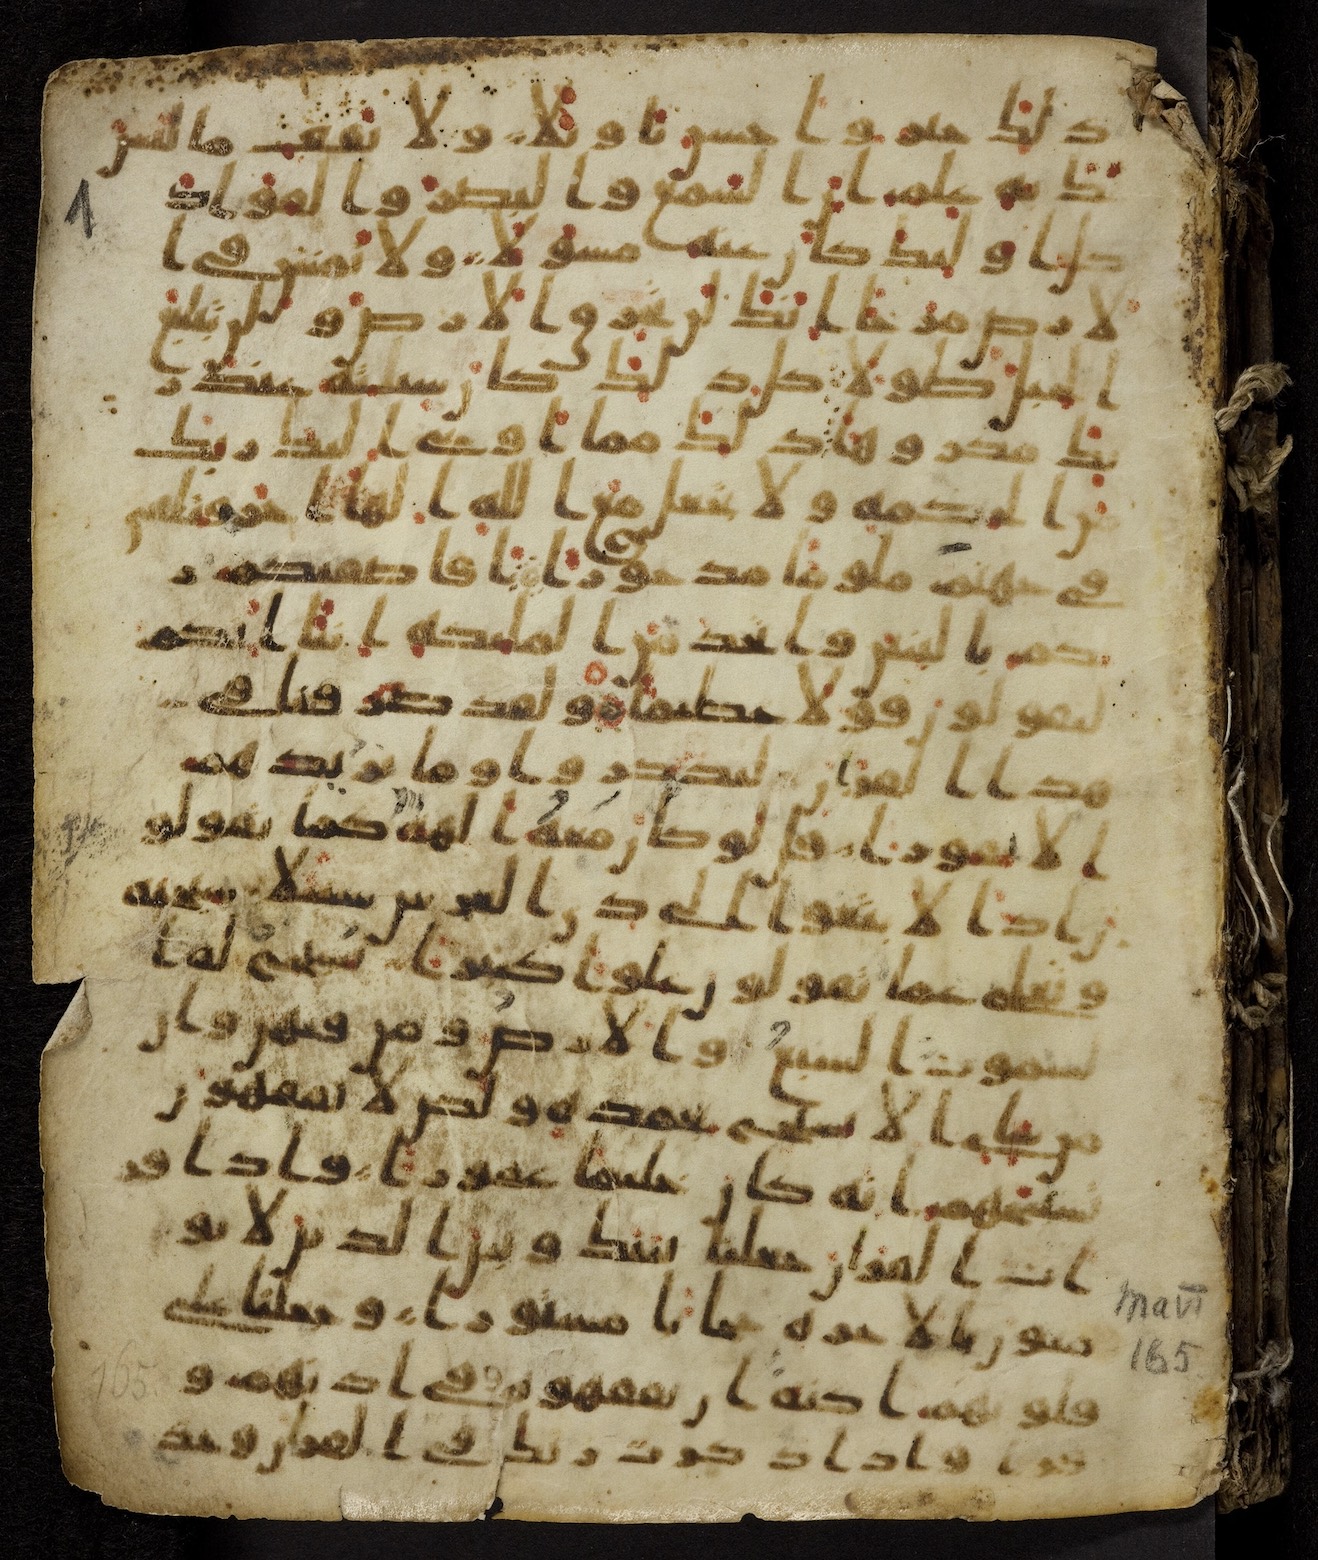 ذلك خير وا حسن تاويلا ولا تقف ما ليس
لك به علم ان السمع والبصر والفواد
كل اوليك كان عنه مسولا ولا تمش في ا
لارض مرحا انك لن تخرق الارض ولن تبلغ
الجبل طولا كل ذلك كان سيئه عند ر
بك مكروها ذلك مما اوحى اليك ربك
من الحكمه ولا تجعل مع الله الها اخر فتلقى
في جهنم ملوما مدحورا افاصفيكم ر
بكم بالبنين واتخذ من المليكه انثا انكم
لتقولون قولا عظيما ولقد صرفنا في
هذا القران ليذكروا وما يزيدهم
الا نفورا قل لو كان معه الهه كما يقولو
ن اذا لابتغوا الى ذي العرش سبيلا سبحنه
وتعلى عما يقولون علوا كبيرا تسبح له ا
لسموت السبع والارض ومن فيهن وان
من شي الا يسبح بحمده ولكن لا تفقهون
تسبيحهم انه كان حليما غفورا واذا قر
ات القران جعلنا بينك وبين الذين لا يو
منون بالاخره حجابا مستورا وجعلنا على
قلوبهم اكنه ان يفقهوه وفي اذنهم و
قرا واذا ذكرت ربك في القران وحد
1
Ma VI
165
165